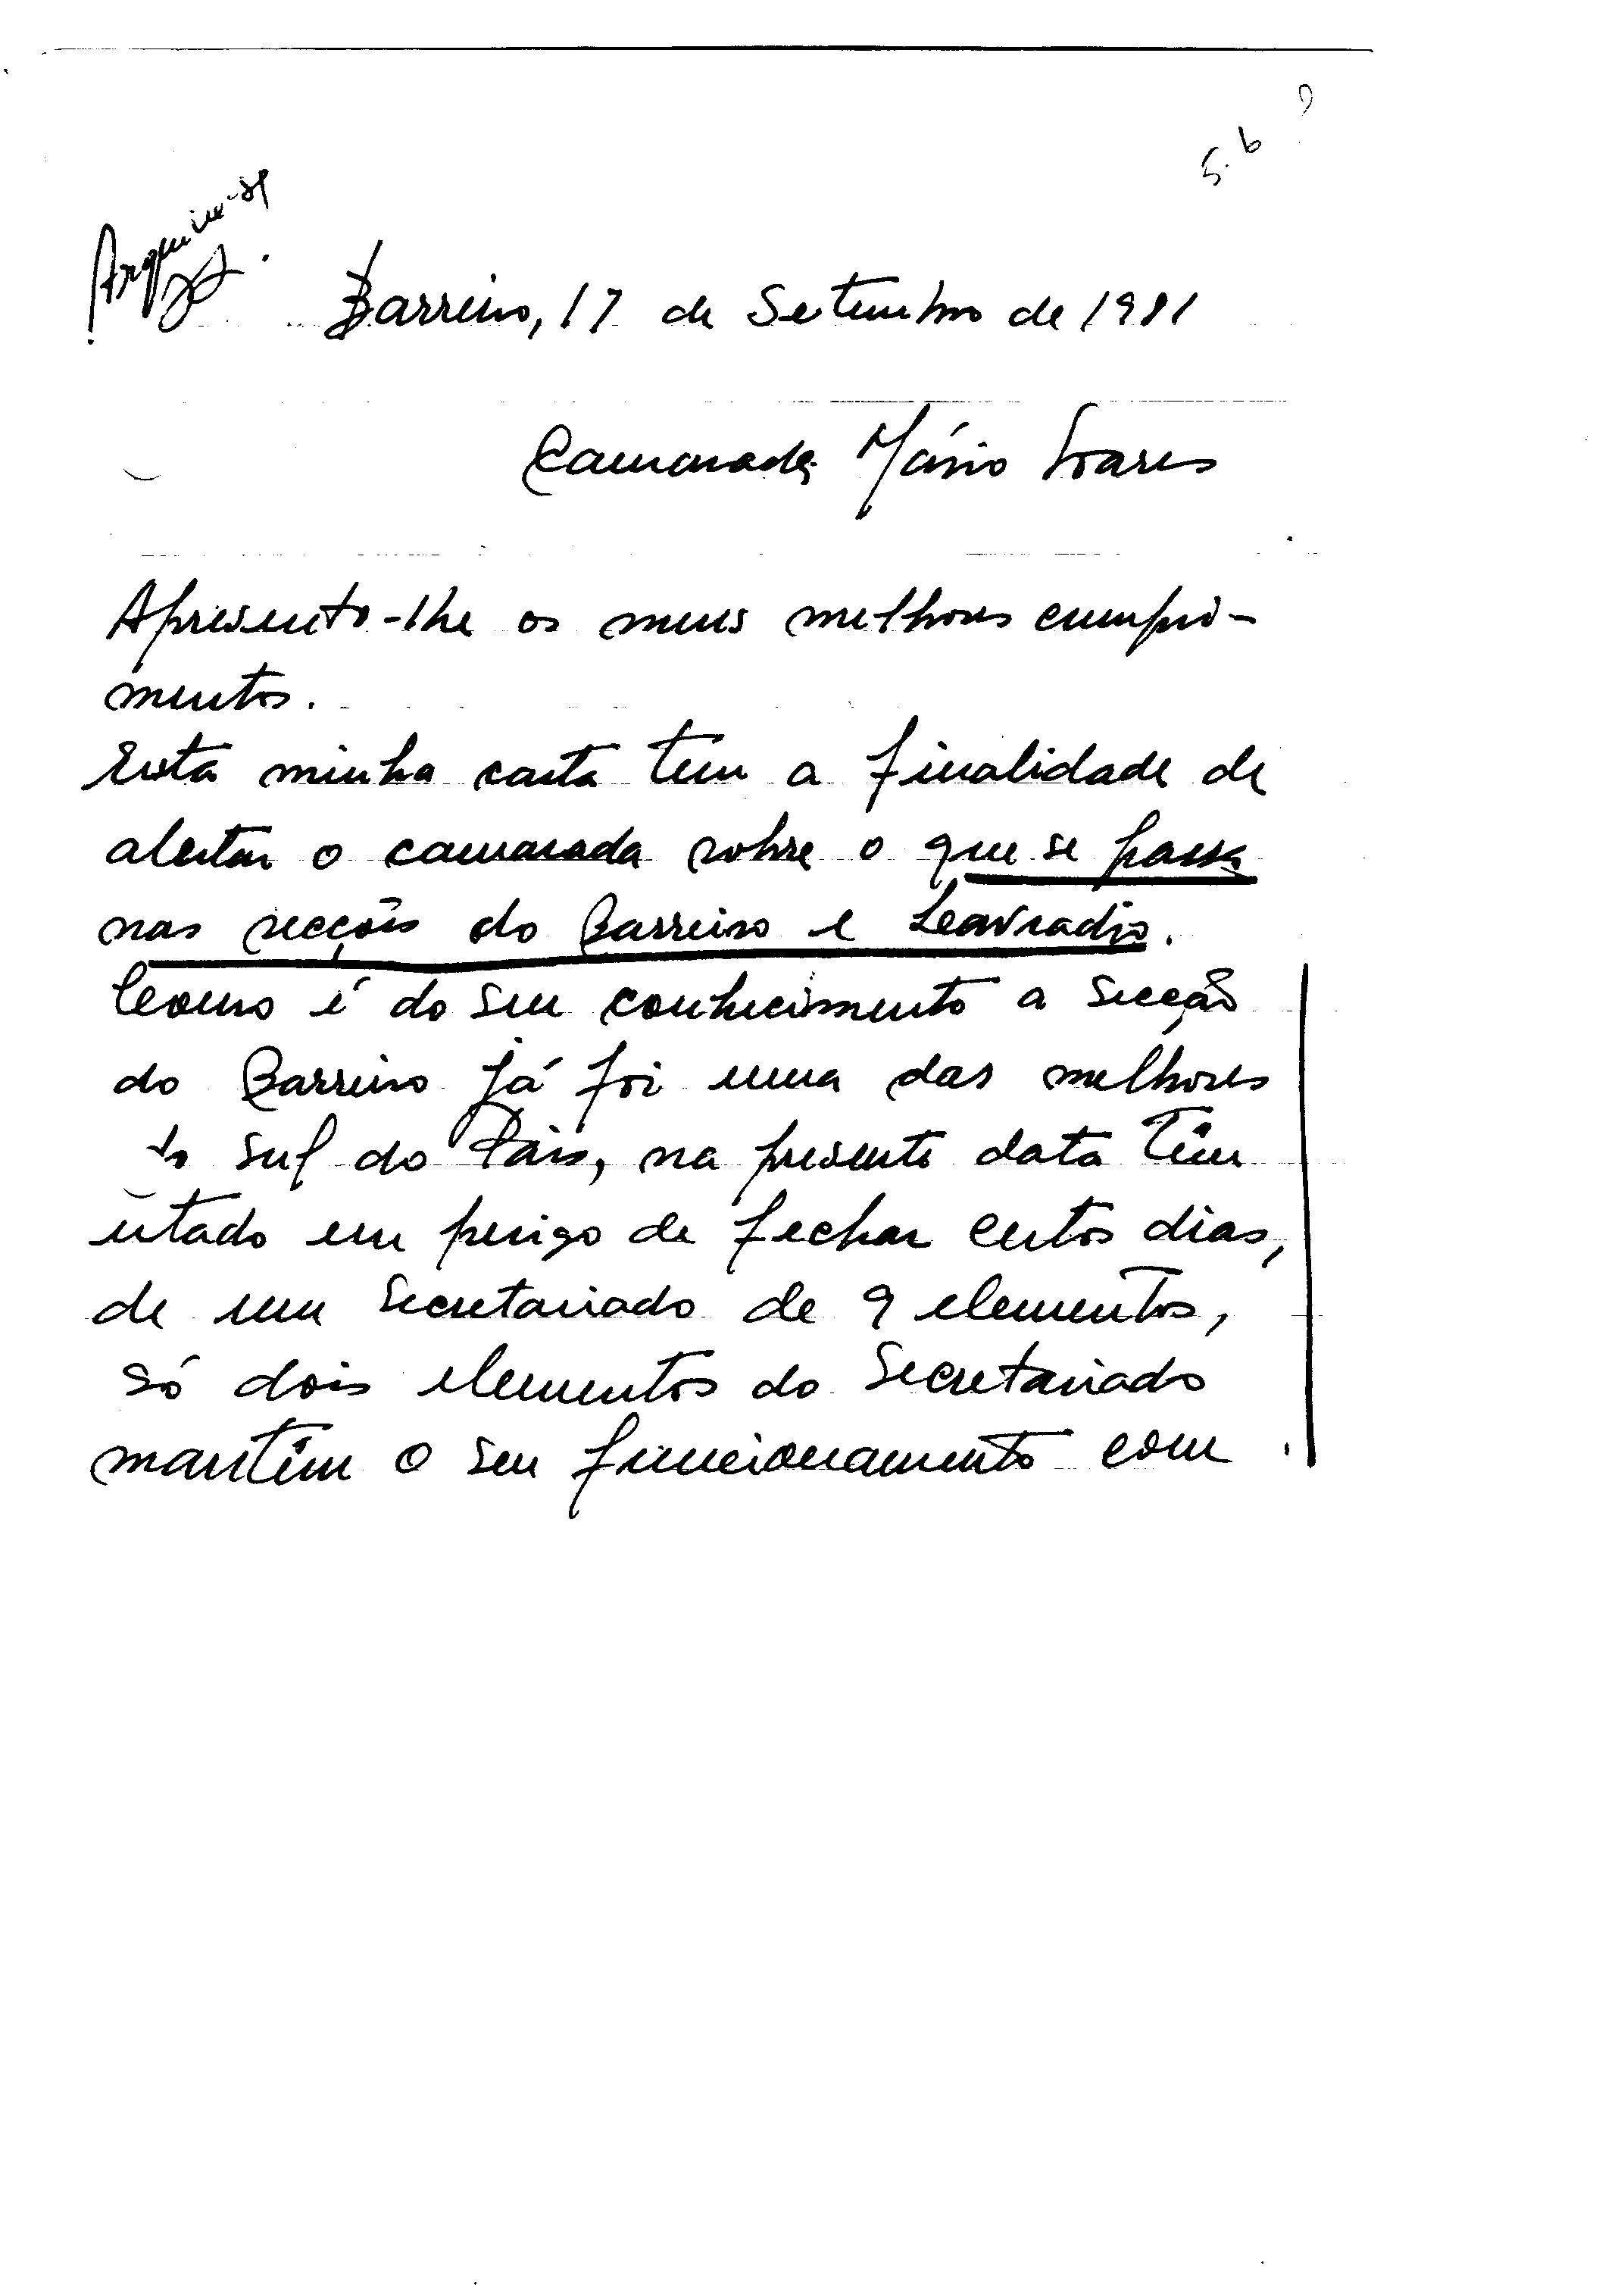 5.6
Barreiro, 17 de Setembro de 1981
Camarada Mário Soares
Apresento-lhe os meus melhores cumpri-
mentos.
Esta minha carta tem a finalidade de
alertar o camarada sobre o que se passa
nas secções do Barreiro e Lavradio.
Como é do seu conhecimento a Secção
do Barreiro já foi uma das melhores
do sul do País, na presente data têm
estado em perigo de fechar certos dias,
de um Secretariado de 9 elementos,
só dois elementos do Secretariado
mantêm o seu funcionamento com